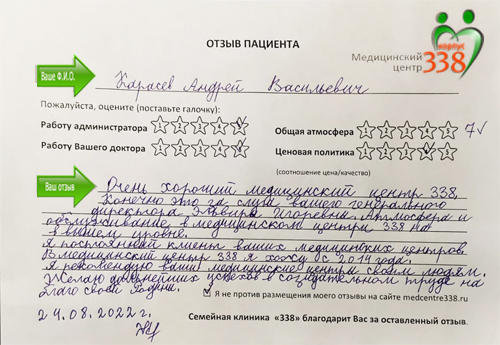 ОТЗЫВ ПАЦИЕНТА
Медицинский центр
корпус
338
Ваше Ф.И.О.
Карасев Андрей Васильевич
Пожалуйста, оцените (поставьте галочку):
Работу администратора 1 2 3 4 5
Общая атмосфера 1 2 3 4 5 7
Работу Вашего доктора 1 2 3 4 5
Ценовая политика 1 2 3 4 5
(соотношение цена/качество)
Ваш отзыв
Очень хороший медицинский центр 338,
Конечно это заслуга вашего генерального
директора Эльвиры Игоревны. Атмосфера и
обслуживание в медицинском центре 338 на
высшем уровне.
Я постоянный клиент ваших медицинских центров.
В медицинский центр 338 я хожу с 2014 года.
Я рекомендую ваши медицинские центры своим людям.
Желаю дальнейших успехов в созидательном труде на
благо своей Родины.
Я не против размещения моего отзывы на сайте medcentre338.ru
24.08.2022г.
Семейная клиника «338» благодарит Вас за оставленный отзыв.